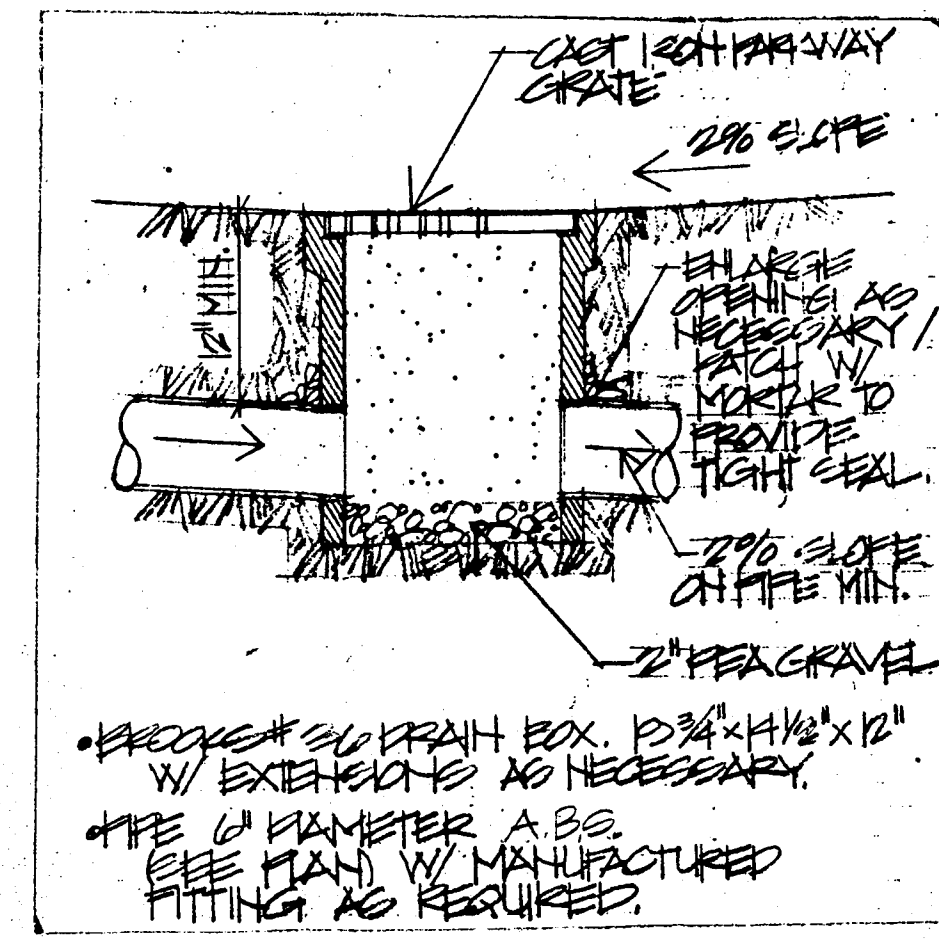 CAST IRON PARKWAY
GRATE
2% SLOPE
12" MIN.
ENLARGE
OPENING AS
NECESSARY /
PATCH W/
MORTAR TO
PROVIDE
TIGHT SEAL.
2% SLOPE
ON PIPE MIN.
2" PEA GRAVEL
• BROOKS # 36 DRAIN BOX. x 14 1/2" x 12"
W/ EXTENSIONS AS NECESSARY.
• PIPE 6" DIAMETER A.B.S.
(SEE PLAN) W/ MANUFACTURED
FITTING AS REQUIRED.